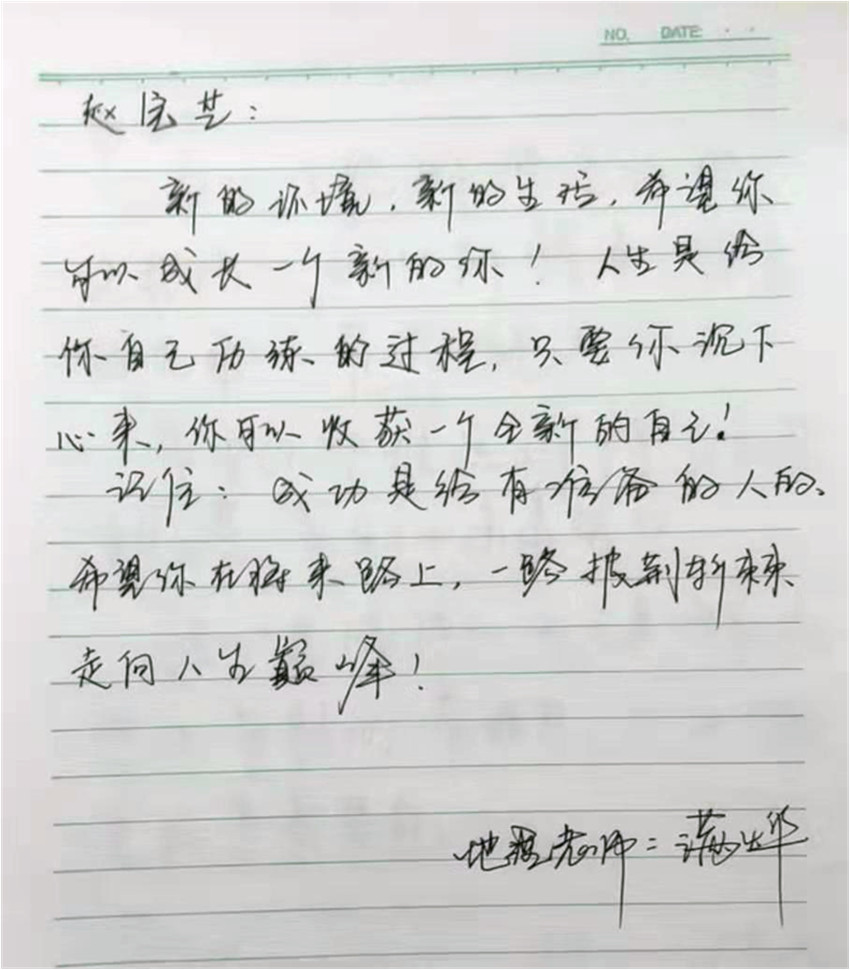 NO. DATE
赵艺:
新的环境,新的生活,希望你
可以成长一个新的你!人生是给
你自己历练的过程,只要你沉下
心来,你可以收获一个全新的自己!
记住:成功是给有准备的人的。
希望你在将来路上,一路披荆斩棘
走向人生巅峰!
地理老师:华